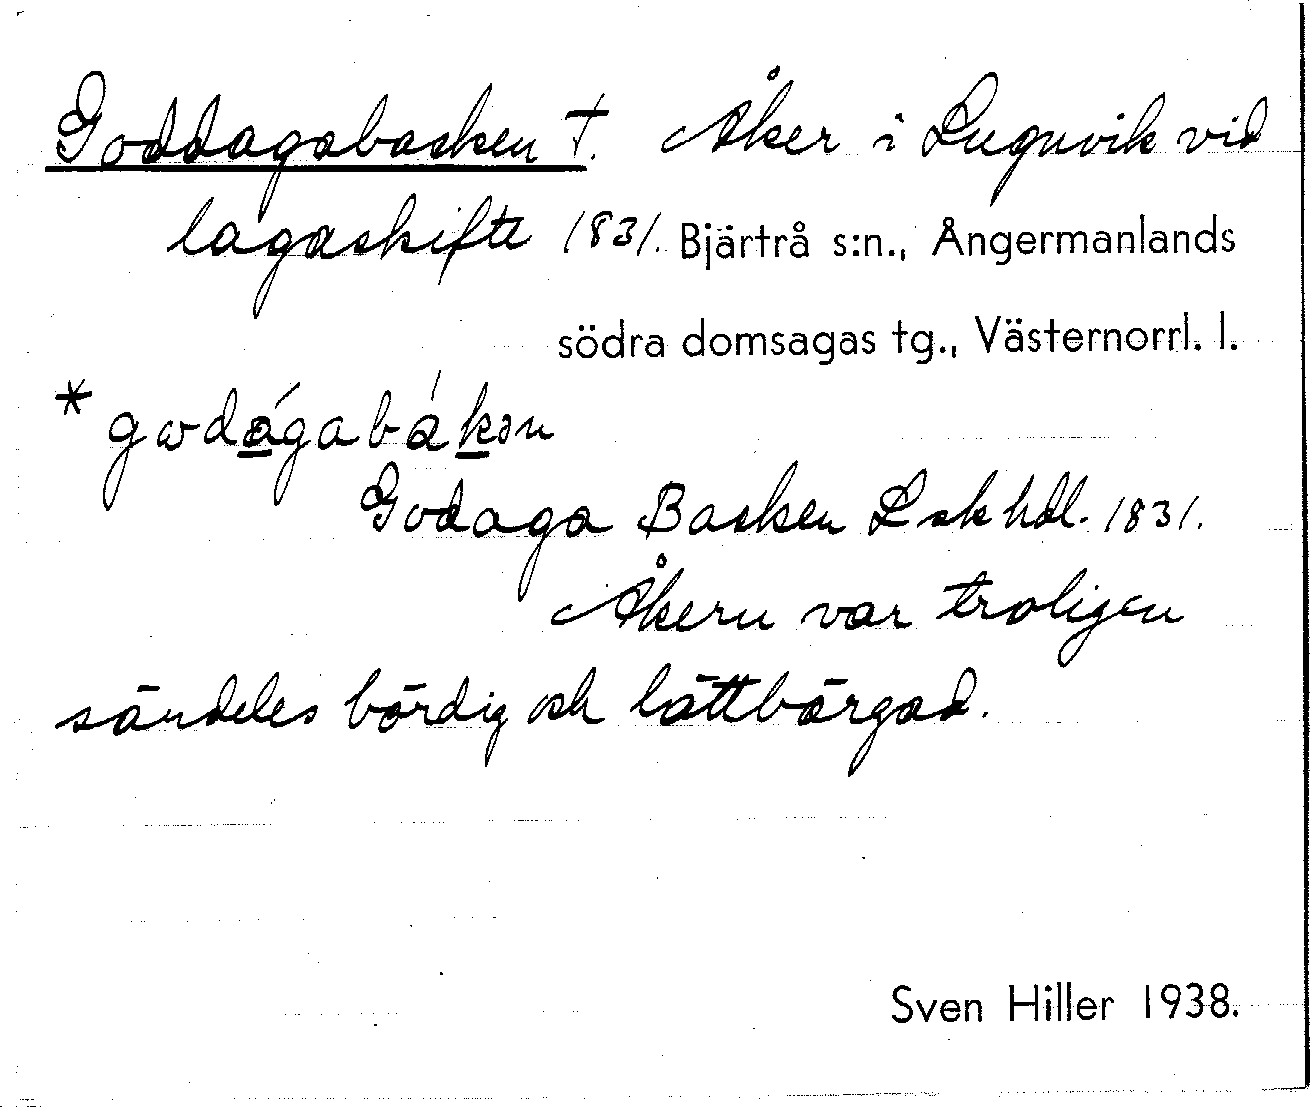 Goddagabacken †. Åker i Lugnvik vid
lagaskifte 1831. Bjärtrå s:n., Ångermanlands
södra domsagas tg., Västernorrl. l.
* godágabákən
Godaga Backen Lskhdl. 1831.
Åkern var troligen
särdeles bördig och lättbärgad.
Sven Hiller 1938.